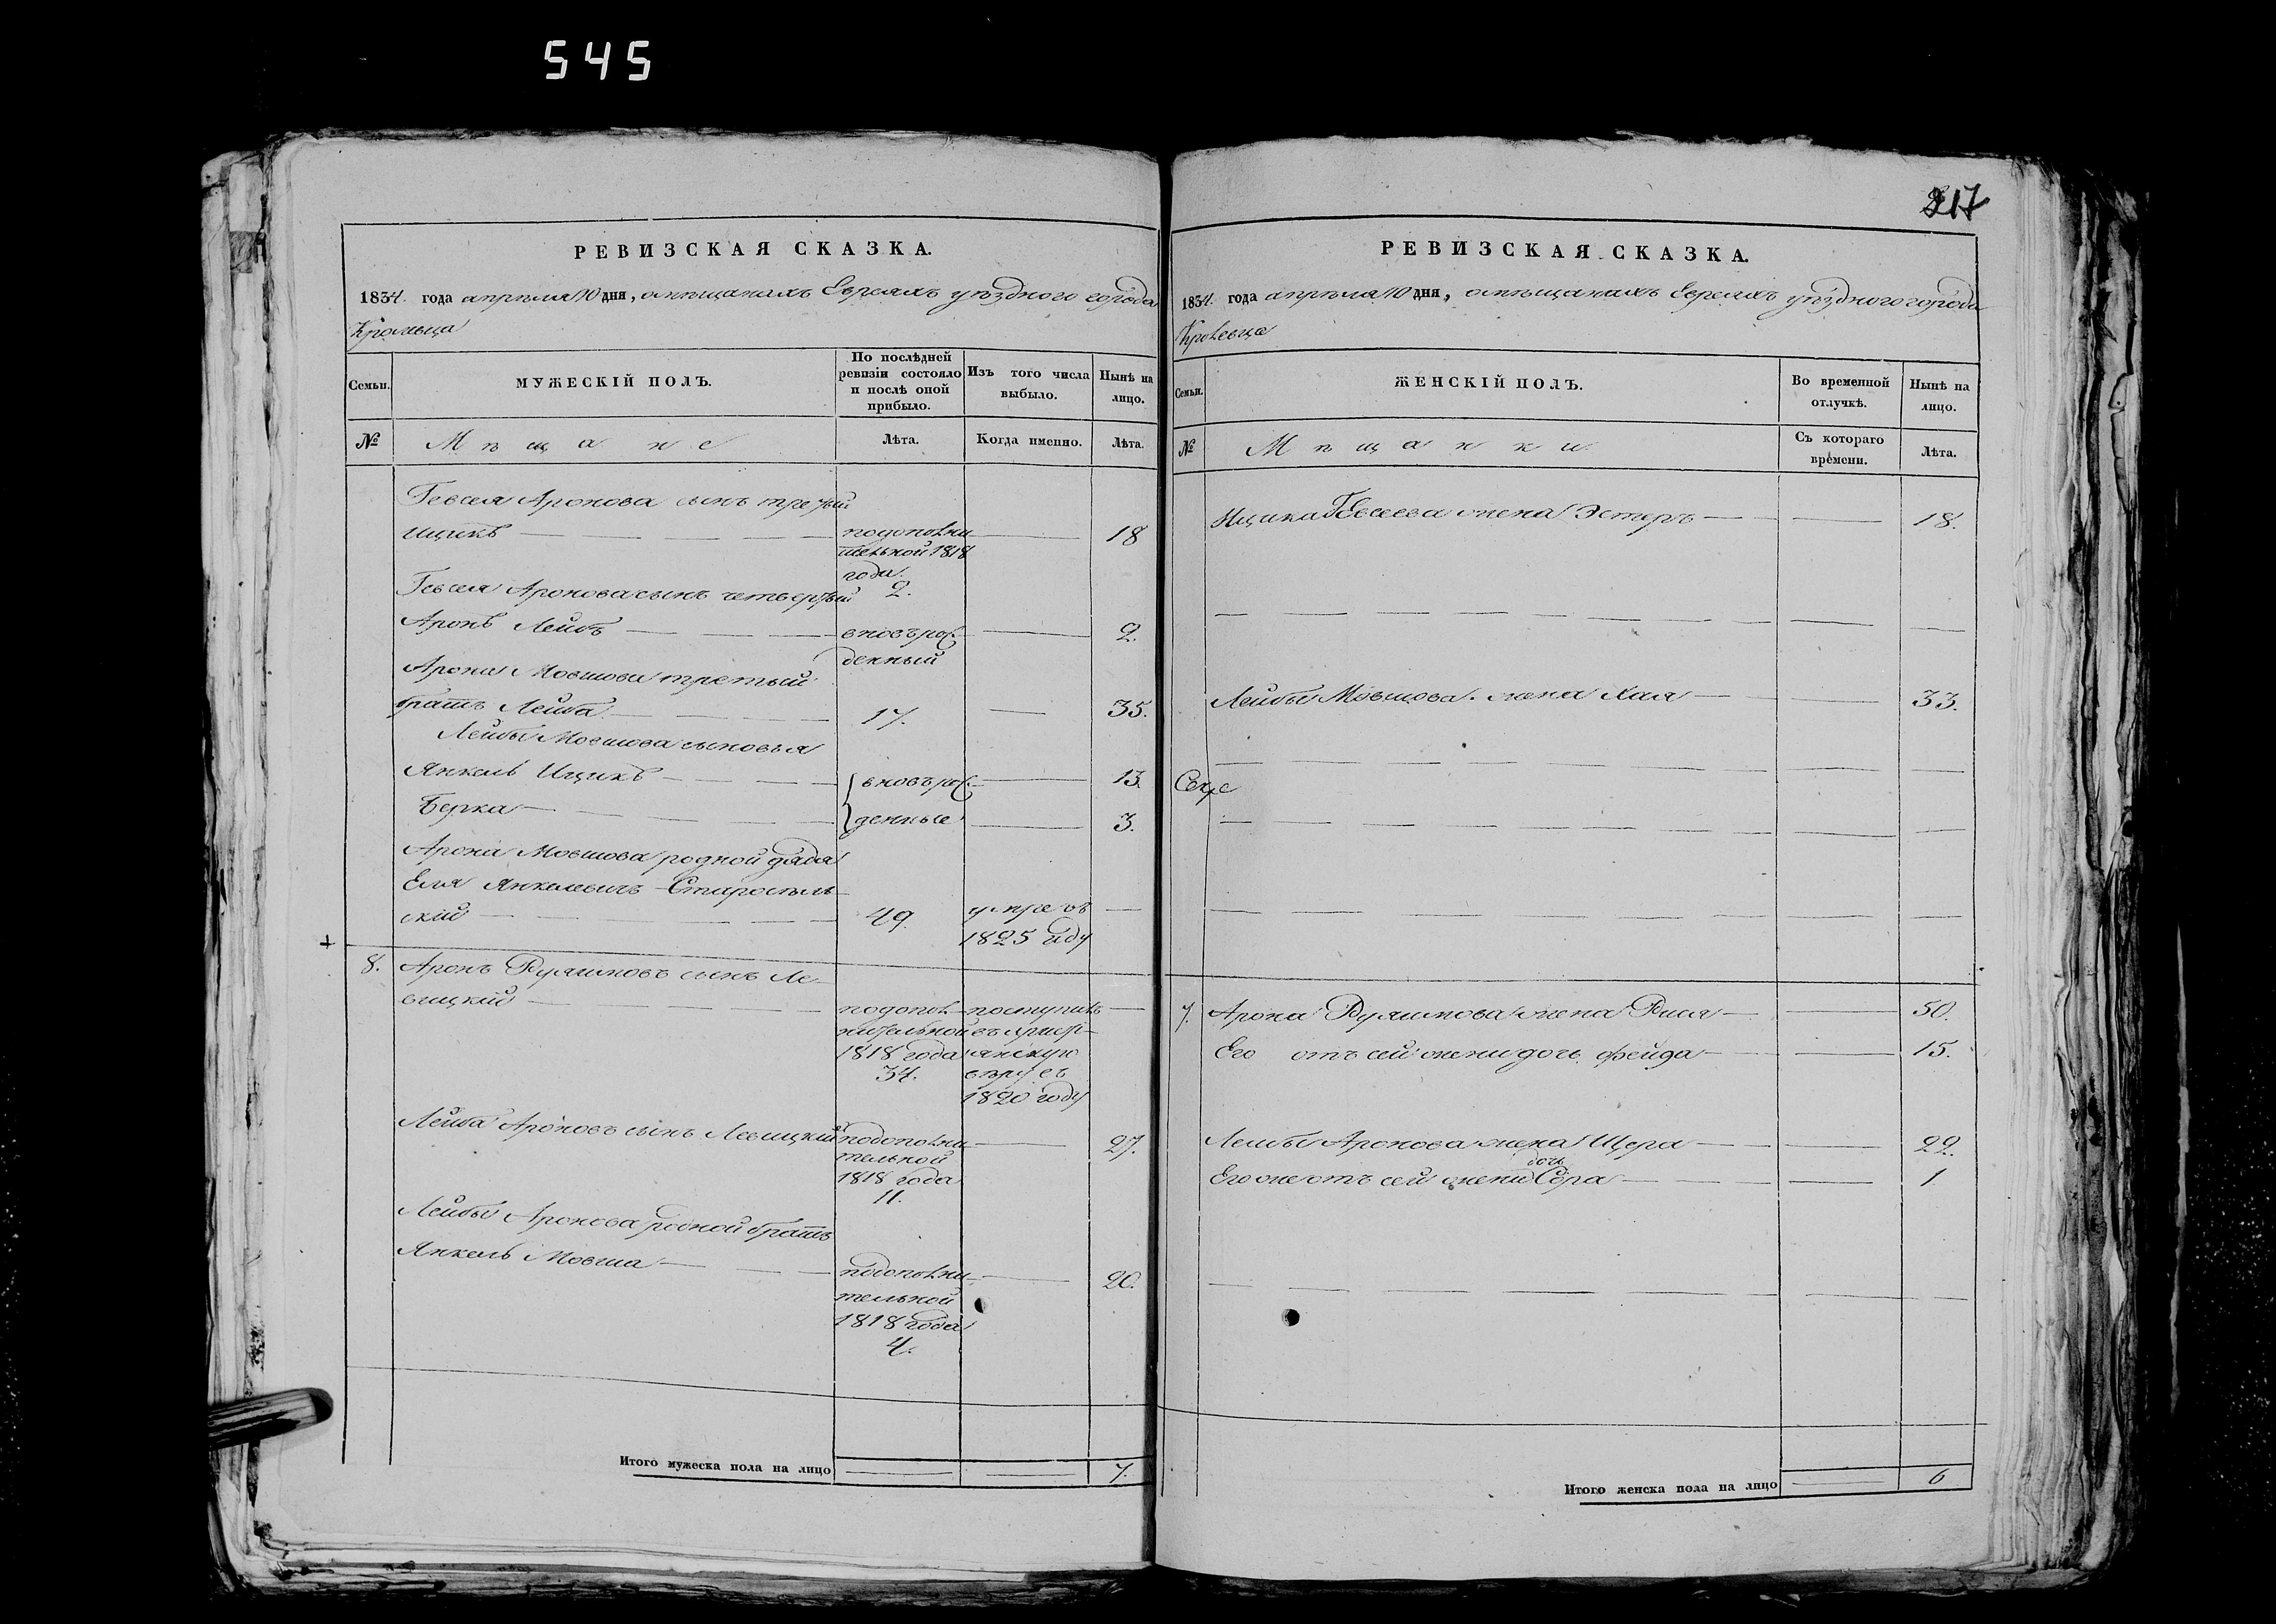 545
217
РЕВИЗСКАЯ СКАЗКА.
1834. года апрѣля 10 дня, о мѣщанахъ Евреяхъ уѣздного города
Кролевца
Семьи.
МУЖЕСКІЙ ПОЛЪ.
По послѣдней
ревизіи состояло
и послѣ оной
прибыло.
Изъ того числа
выбыло.
Нынѣ на
лицо.
№
Мѣщане
Лѣта.
Когда именно.
Лѣта.
Гевселя Аронова сынъ третьий
Ицикъ
по дополни
тельной 1818
года.
2.
18
Гевселя Аронова сынъ четвертый
Аронъ Лейбъ
вновърож
денный
2.
Арона Мовшова третьий
братъ Лейба
17.
35.
Лейбы Мовшова сыновья
Янкель Ицикъ
вновърож
13.
Берка
денные
3.
Арона Мовшова родной дядя
Еля Янкелевичъ Старосель
скій
49.
умре въ
1825 году
8.
Аронъ Рулимовъ сынъ Ле-
вицкий
по допол
нительной
1818 года
34.
поступилъ
въ христі
янскую
вѣру въ
1820 году
Лейба Ароновъ сынъ Левицкий
по дополни
тельной
1818 года
11.
27.
Лейбы Аронова родной братъ
Янкель Мовша
по дополни
тельной
1818 года
4.
20.
Итого мужеска пола на лицо
7.
РЕВИЗСКАЯ СКАЗКА.
1834. года апрѣля 10 дня, о мѣщанахъ Евреяхъ уѣздного города
Кролевца
Семьи.
ЖЕНСКІЙ ПОЛЪ.
Во временной
отлучкѣ.
Нынѣ на
лицо.
№
Мѣщанки
Съ котораго
времени.
Лѣта.
Ицика Гевсеева жена Эстеръ
18.
Лейбы Мовшова жена Хая
33.
Арона Рулимова жена Рися
50.
Его отъ сей жени дочь Фейда
15.
Лейбы Аронова жена
22.
дочь
Его же отъ сей жени Сора
1
Итого женска пола на лицо
6